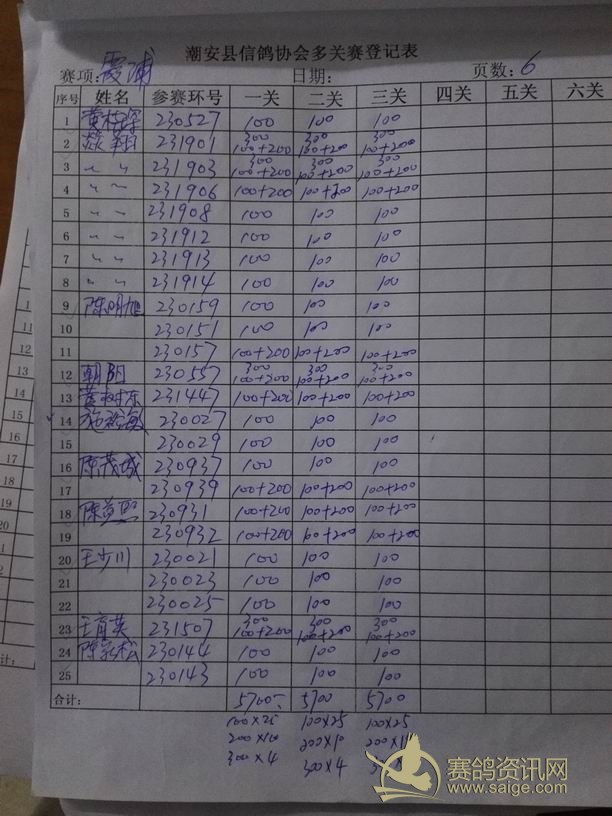 潮安县信鸽协会多关赛登记表
赛项: 霞浦 日期: 页数: 6
序号 姓名 参赛环号 一关 二关 三关 四关 五关 六关
1 230527 100 100 100
2 231901 300 100+200 300 100+200 300 100+200
3 〃 〃 231903 300 100+200 300 100+200 300 100+200
4 〃 〃 231906 100+200 100+200 100+200
5 〃 〃 231908 100 100 100
6 〃 〃 231912 100 100 100
7 〃 〃 231913 100 100 100
8 〃 〃 231914 100 100 100
9 陈明旭 230159 100 100 100
10 230151 100 100 100
11 230157 100+200 100+200 100+200
12 朝阳 230557 300 300 100+200 300 100+200
13 黄树东 231447 100+200 100+200 100+200
14 230027 100 100 100
15 230029 100 100 100
16 陈茂城 230937 100 100 100
17 230939 100+200 100+200 100+200
18 陈益熙 230931 100+200 100+200 100+200
19 230932 100+200 100+200 100+200
20 王少川 230021 100 100 100
21 230023 100 100 100
22 230025 100 100 100
23 王育英 231507 300 100+200 300 100+200 300 100+200
24 陈家松 230144 100 100 100
25 230143 100 100 100
合计: 5700 5700 5700
100×25 100×25 100×25
200×10 200×10
300×4 300×4
赛鸽资讯网
www.saige.com
11
12
13
14
15
16
17
18
19
20
计: